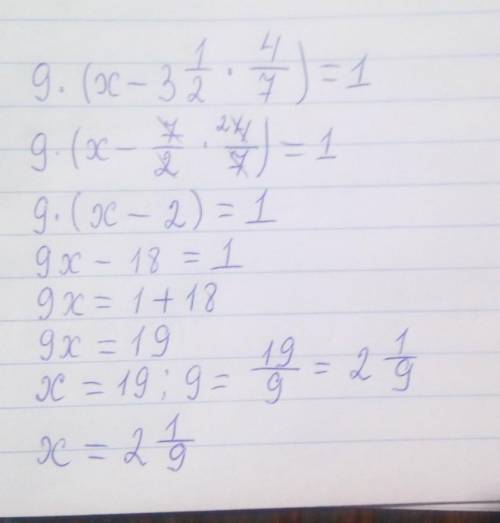 9·(x - 3 1/2 · 4/7) = 1
9·(x - 7/2 · 2 4/7) = 1
9·(x - 2) = 1
9x - 18 = 1
9x = 1 + 18
9x = 19
x = 19 : 9 = 19/9 = 2 1/9
x = 2 1/9